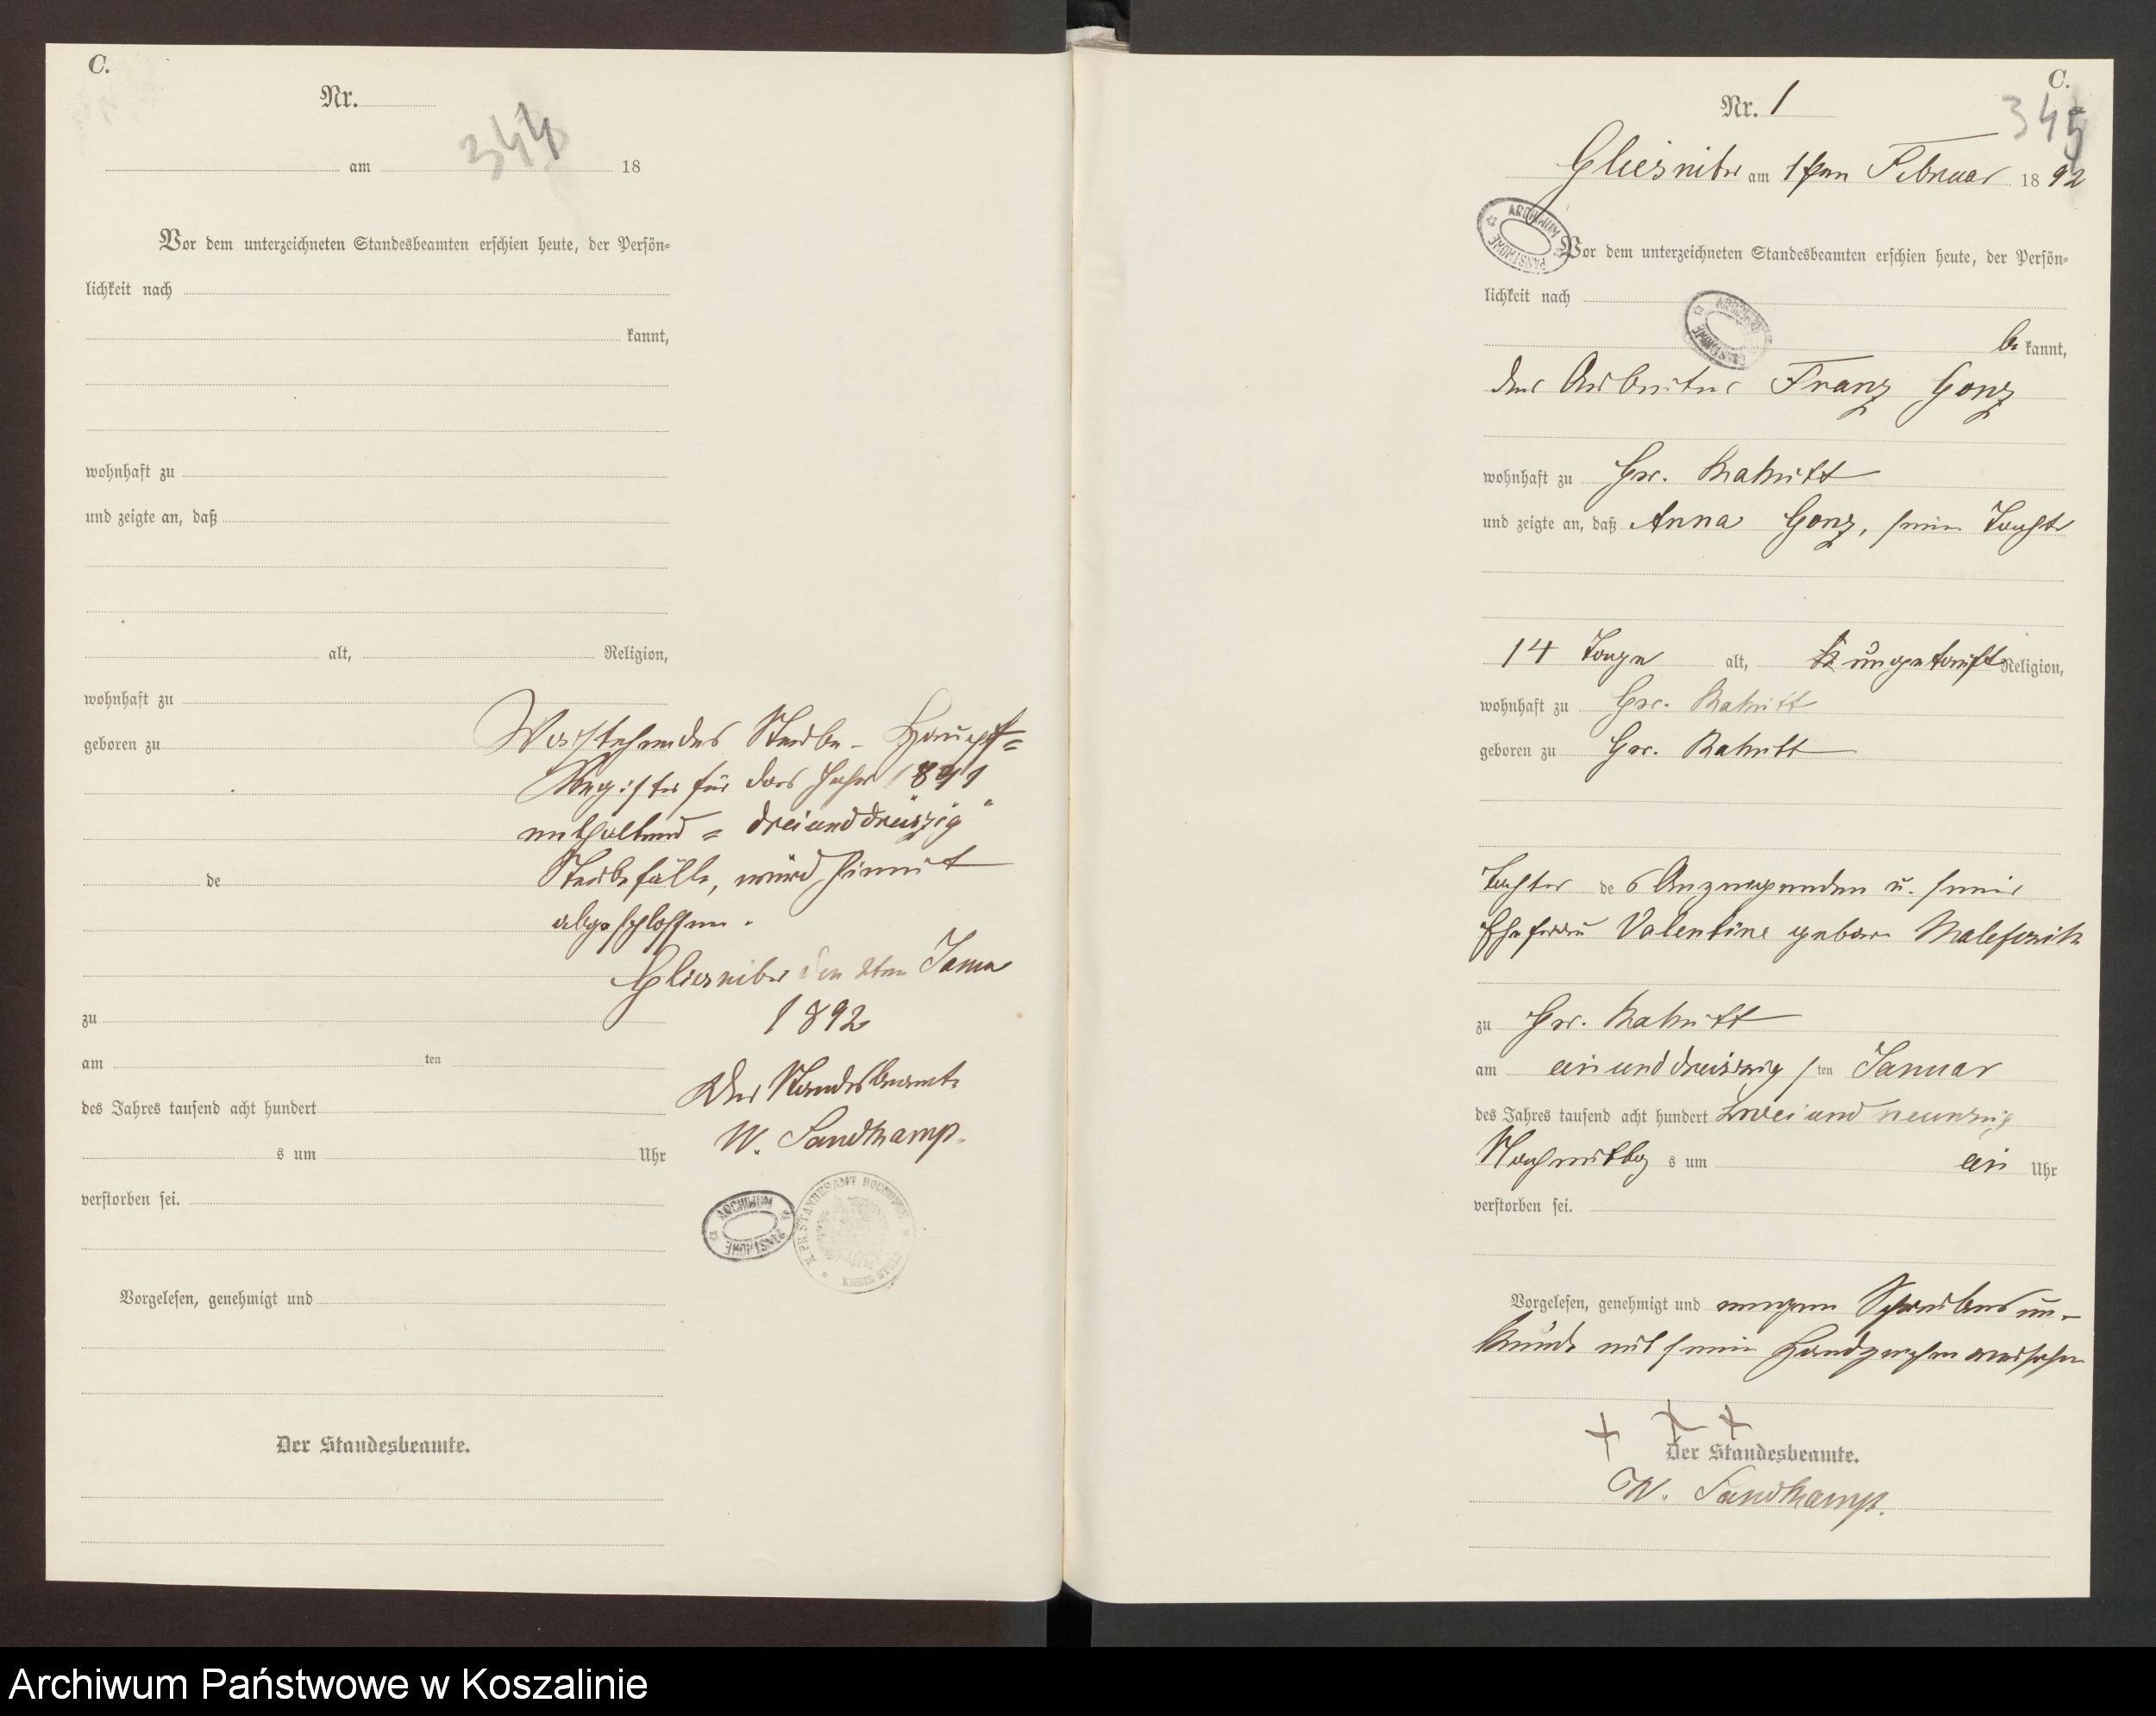 C.
Nr.
344
am 18
Vor dem unterzeichneten Standesbeamten erschien heute, der Persön-
lichkeit nach
kannt,
wohnhaft zu
und zeigte an, daß
alt, Religion,
wohnhaft zu
geboren zu
Vorstehendes Sterbe-Haupt=
Register für das Jahr 1891
enthaltend = dreiunddreiszig "
de
Sterbefälle, wird hiermit
abgeschlossen.
den Januar
1892
zu
am ten
des Jahres tausend acht hundert
s um Uhr
verstorben sei.
Der Standesbeamte
W. Sandkamp.
ARCHIWUM PAŃSTWOWE
K. PR. STANDESAMT KREIS STOLP
Vorgelesen, genehmigt und
Der Standesbeamte.
C.
345
Nr. 1
am 1ten Februar 1892
ARCHIWUM PAŃSTWOWE
Vor dem unterzeichneten Standesbeamten erschien heute, der Persön-
lichkeit nach
ARCHIWUM PAŃSTWOWE
be kannt,
der Arbeiter Franz Gonz
wohnhaft zu Gr.
und zeigte an, daß Anna Gonz, seine Tochter
14 Tage alt, ungetauft Religion,
wohnhaft zu Gr.
geboren zu Gr.
Tochter des Anzeigenden u. seiner
Ehefrau Valentine geborene
zu Gr.
am einunddreiszig sten Januar
des Jahres tausend acht hundert zwei und neunzig
Nachmittag s um ein Uhr
verstorben sei.
Vorgelesen, genehmigt und wegen Schreibens un-
kunde mit seinem Handzeichen versehen
+ + +
Der Standesbeamte.
W. Sandkamp.
Archiwum Państwowe w Koszalinie